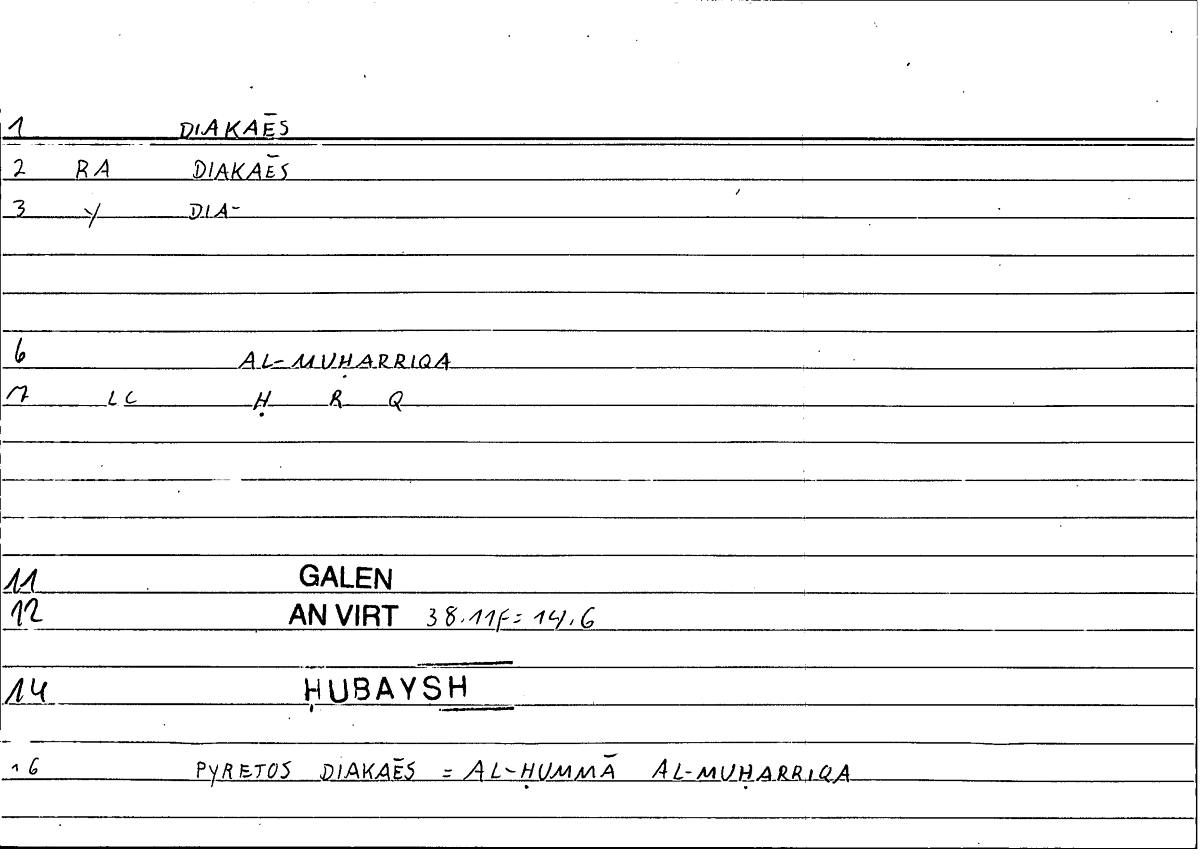 1 DIAKAĒS
2 RA DIAKAĒS
3 Y DIA-
6 AL-MUḤARRIQA
7 LC Ḥ R Q
11 GALEN
12 AN VIRT 38.11f = 14.6
14 ḤUBAYSH
16 PYRETOS DIAKAĒS = AL-ḤUMMĀ AL-MUḤARRIQA